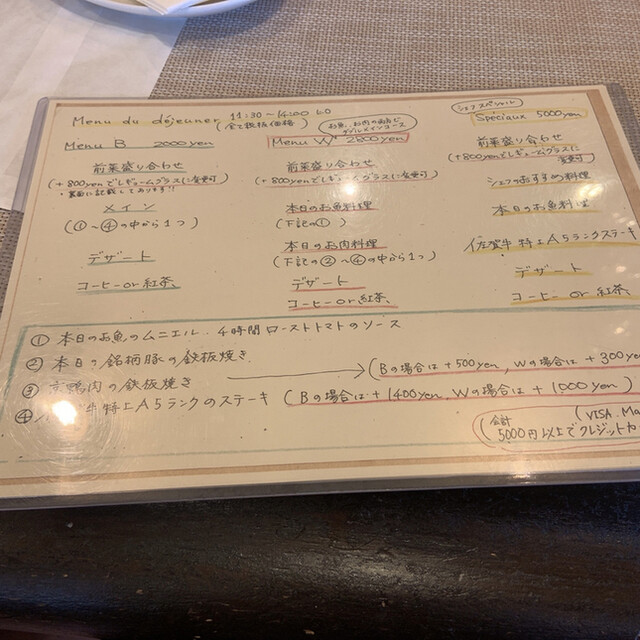 Menu du déjeuner 11:30〜14:00 L.O
(全て税抜価格)
Menu B 2000yen
前菜盛り合わせ
(+800yenでレギュームグラスに変更可)
・裏面に記載してあります!!
メイン
(①〜④の中から1つ)
デザート
コーヒーor紅茶、
お魚、お肉の両方で
ダブルメインコース
Menu W 2800yen
前菜盛り合わせ
(+800yenでレギュームグラスに変更可)
本日のお魚料理
(下記の①)
本日のお肉料理
(下記の②〜④の中から1つ)
デザート
コーヒーor紅茶、
シェフスペシャル
Speciaux 5000yen
前菜盛り合わせ
(+800yenでレギュームグラスに
変更可)
シェフのおすすめ料理
本日のお魚料理
佐賀牛特上A5ランクステーキ
デザート
コーヒー or 紅茶、
① 本日のお魚のムニエル・4時間ローストトマトのソース
② 本日の銘柄豚の鉄板焼き
③ 京鴨肉の鉄板焼き (Bの場合は+500yen、Wの場合は+300ye
④ 牛特上A5ランクのステーキ (Bの場合は+1400yen、Wの場合は+1000yen)
(会計 (VISA・Ma
5000円以上でクレジットカ